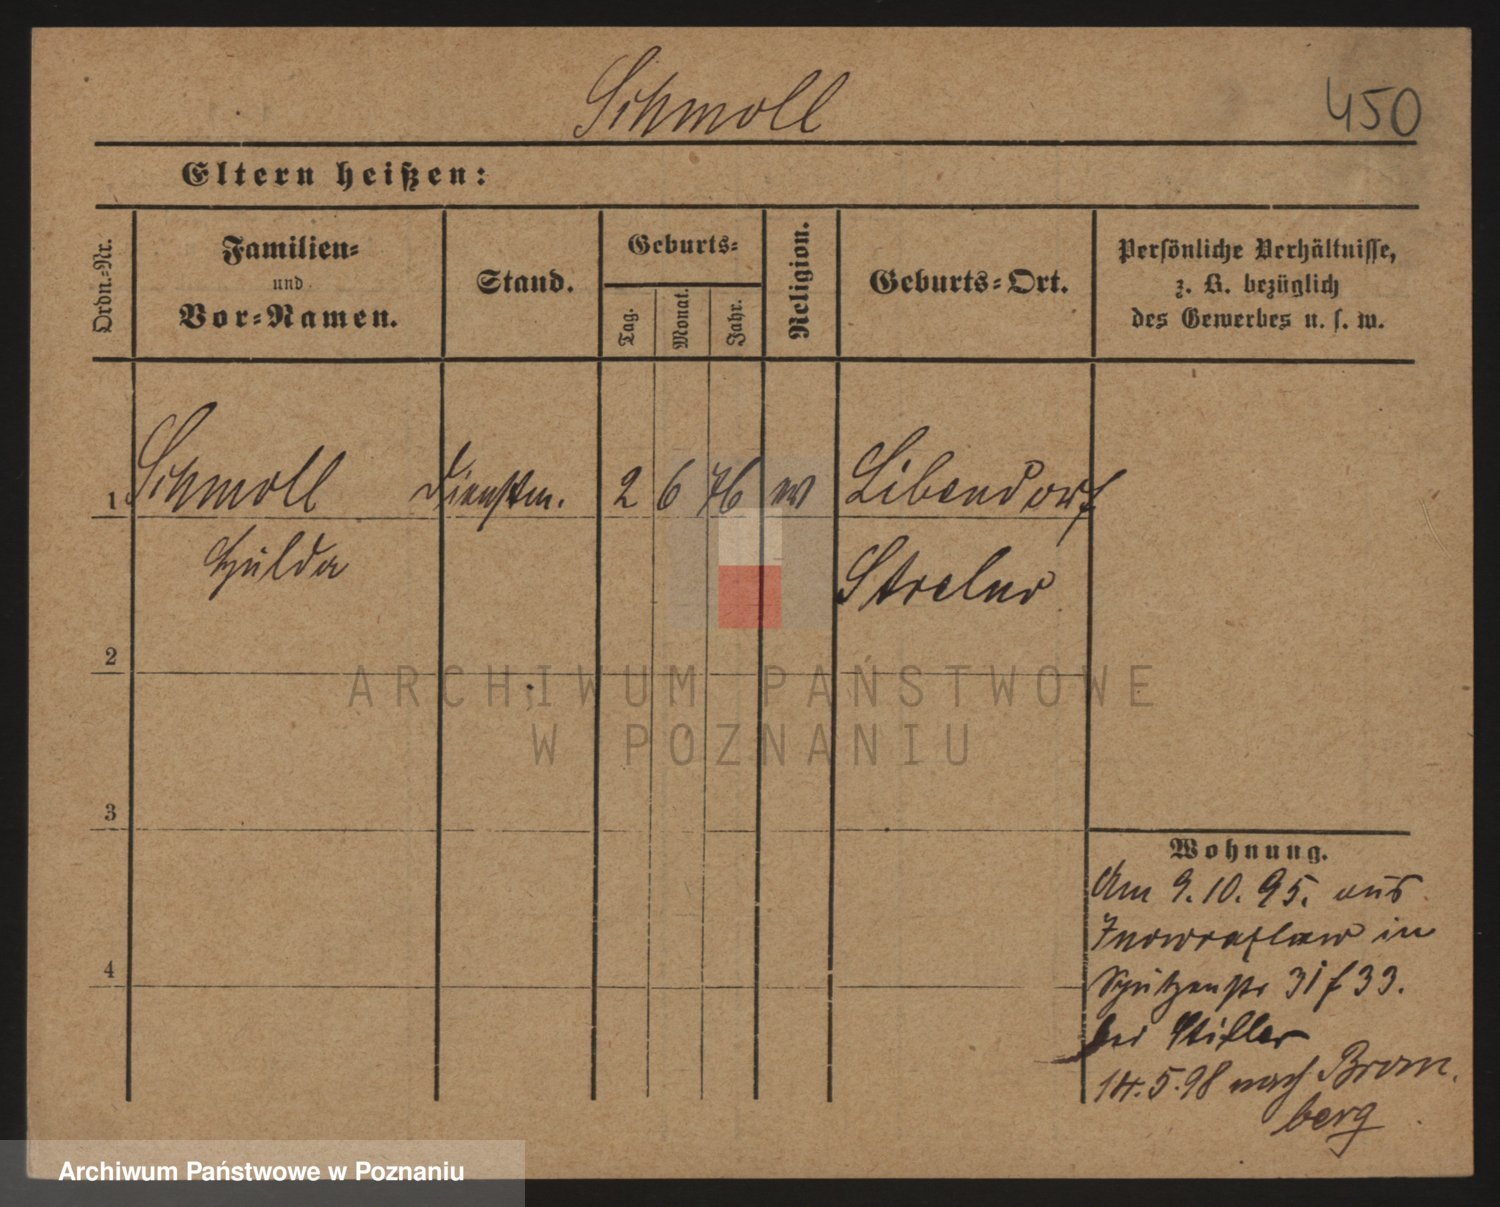 Schmoll
450
Eltern heißen:
Ordn.-Nr.
Familien-
und
Vor-Namen.
Stand.
Geburts-
Tag.
Monat.
Jahr.
Religion.
Geburts-Ort.
Persönliche Verhältnisse,
z. B. bezüglich
des Gewerbes u. s. w.
1 Schmoll Dienstm. 2 6 76 ev Libendorf
Hulda Strelno
2
3
4
Wohnung.
Am 9.10.95. aus
Inowrazlaw in
Schützenstr 31/33.
bei
14.5.98 nach Brom-
berg
ARCHIWUM PAŃSTWOWE
W POZNANIU
Archiwum Państwowe w Poznaniu